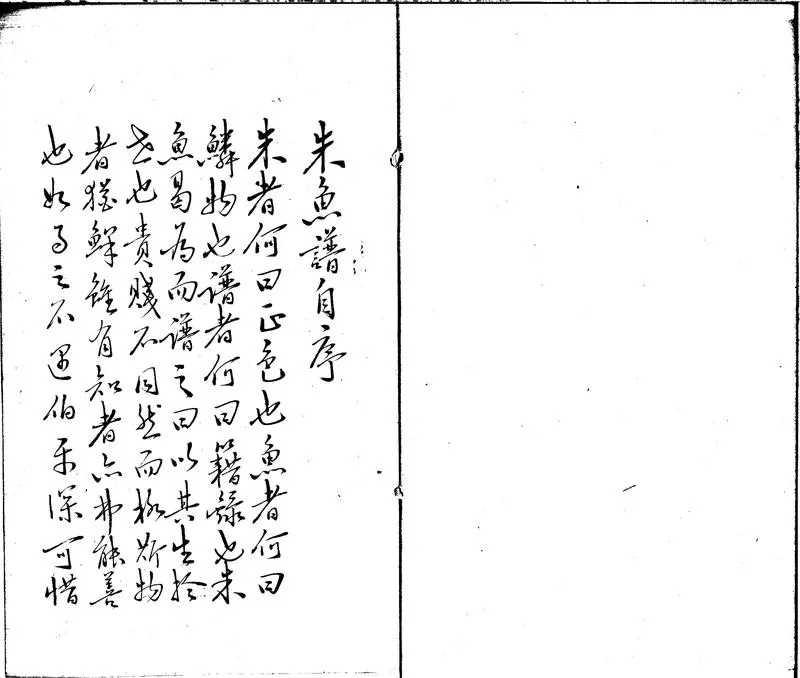 朱魚譜自序
朱者何曰正色也魚者何曰
鱗物也譜者何曰籍錄也朱
魚曷為而譜之曰以其生於
世也貴賤不同然而斯物
者猶鮮雖有知者亦弗能善
也如馬之不遇伯樂深可惜